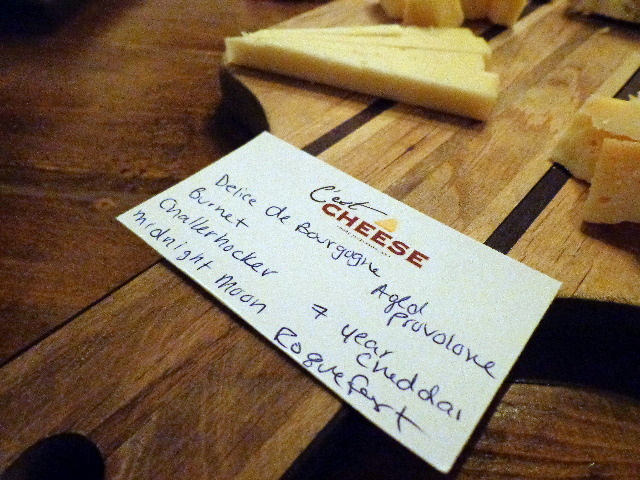 C'est
CHEESE
Delice de Bourgogne
Burnet
Challerhocker
midnight moon
Aged
Provolone
7 year
cheddar
Roquefort